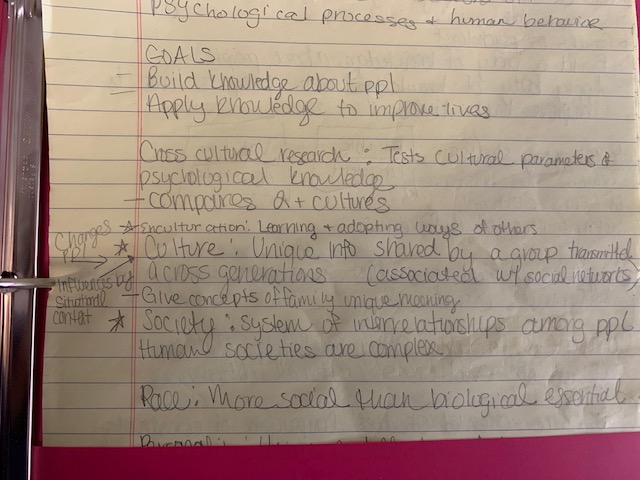 psychological processes + human behavior
GOALS
- Build knowledge about ppl
- Apply knowledge to improve lives
Cross cultural research : Tests cultural parameters of
psychological knowledge
- compaires 2+ cultures
☆ Enculturation: Learning + adopting ways of others
Changes
ppl
☆ Culture : Unique info shared by a group transmitted
across generations (associated w/ social networks)
- Influences by
situational
context
- Give concepts of family unique meaning
☆ Society : system of interrelationships among ppl
Human societies are complex
Race : More social than biological essential